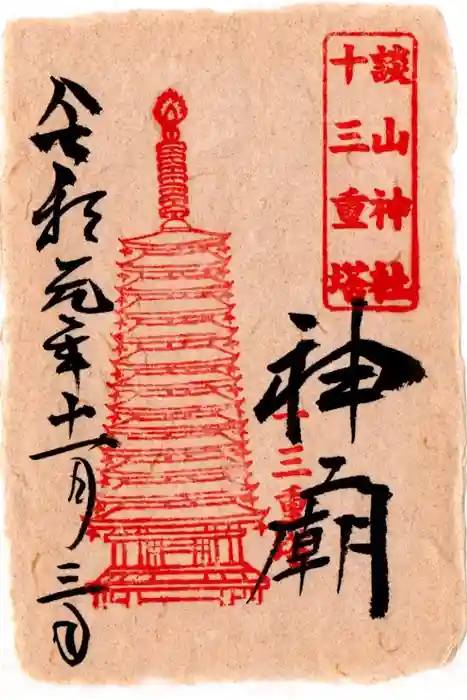 談山神社
十三重塔
神廟
十三重塔
令和元年十一月三日